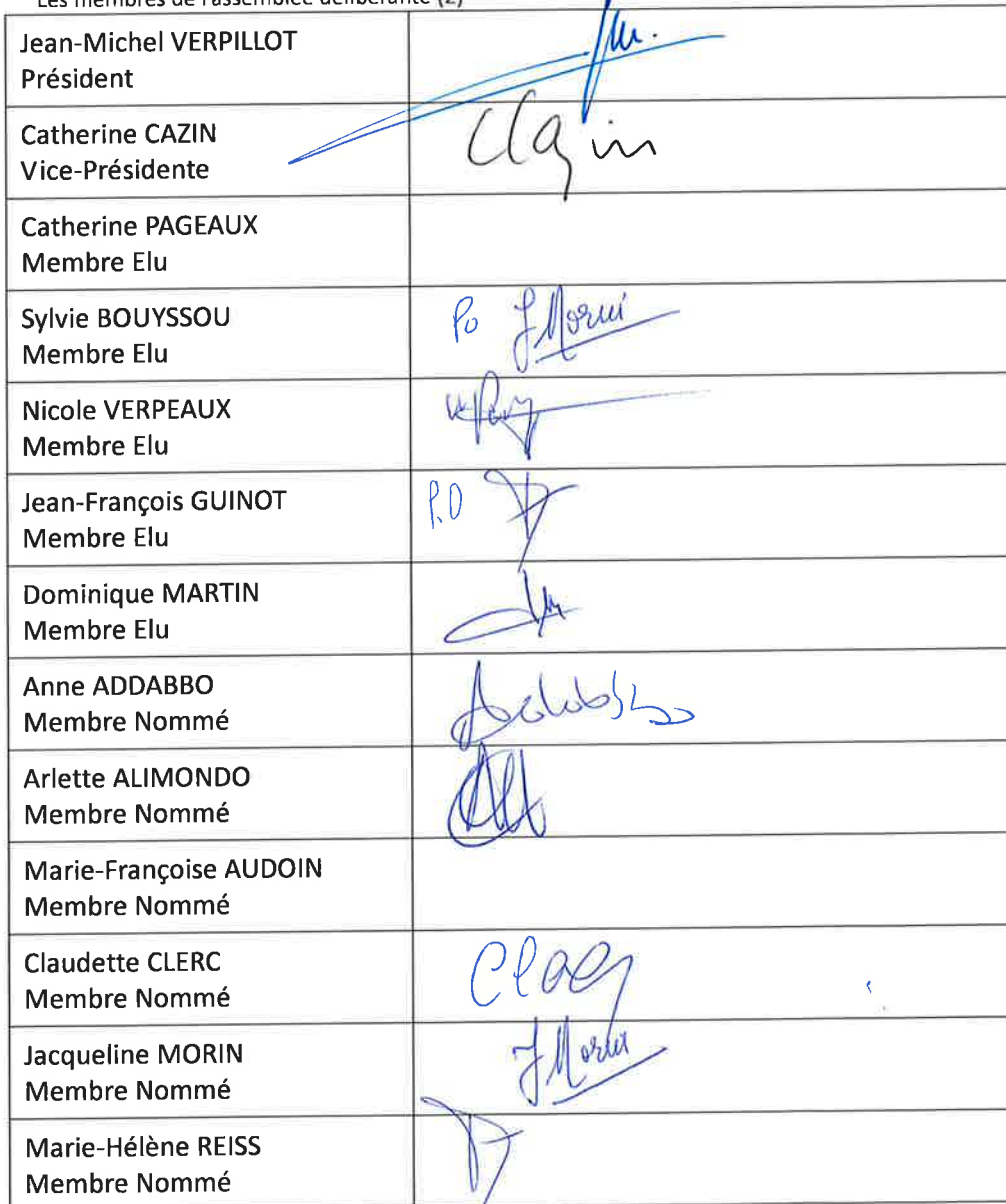 Les membres de l'assemblée délibérante (2)
Jean-Michel VERPILLOT
Président
Catherine CAZIN
Vice-Présidente
CCazin
Catherine PAGEAUX
Membre Elu
Sylvie BOUYSSOU
Membre Elu
Po JMorin
Nicole VERPEAUX
Membre Elu
Jean-François GUINOT
Membre Elu
P.O
Dominique MARTIN
Membre Elu
Anne ADDABBO
Membre Nommé
Addabbo
Arlette ALIMONDO
Membre Nommé
Marie-Françoise AUDOIN
Membre Nommé
Claudette CLERC
Membre Nommé
Jacqueline MORIN
Membre Nommé
JMorin
Marie-Hélène REISS
Membre Nommé